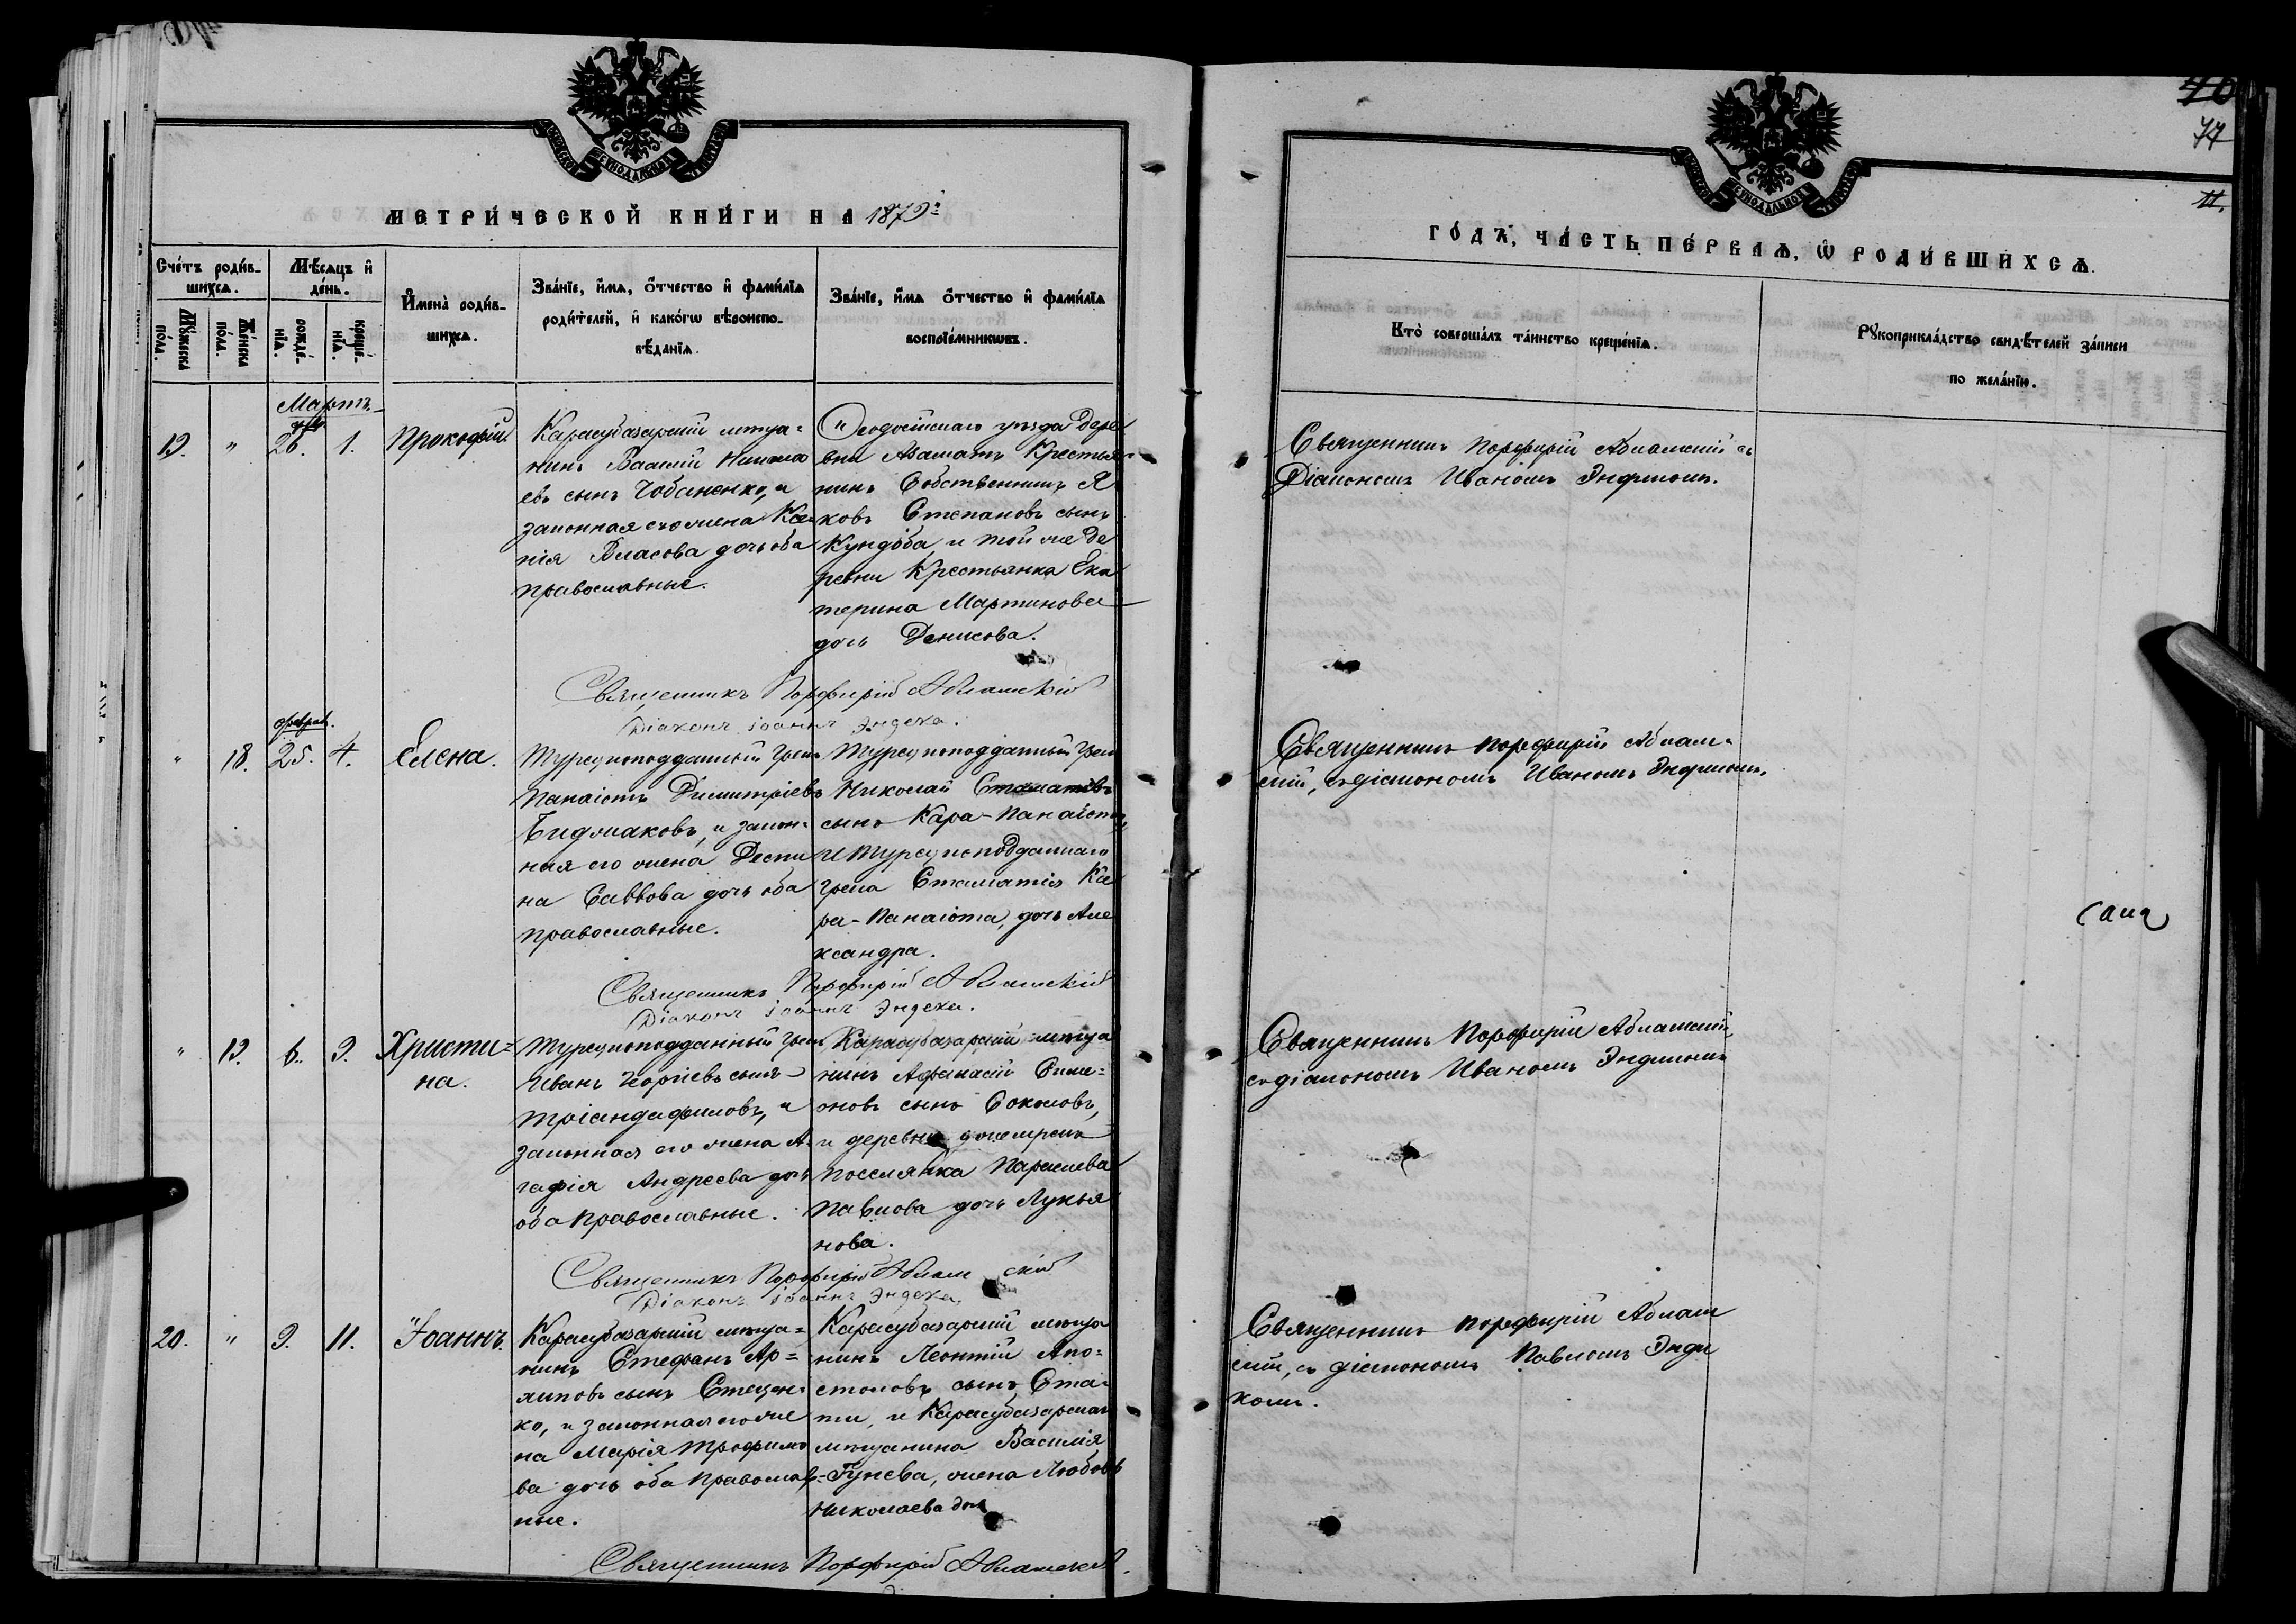 МЕТРИ́ЧЕСКОЙ КНИ́ГИ НА 1879 г
Счéтъ роди́в-
шихсѧ.
Мѣ́сѧцъ и҆
де́нь.
И҆мена̀ роди́в-
шихсѧ.
Зва́нїе, и҆́мѧ, ѻ҆́тчество и҆ фами́лїѧ
роди́телей, и҆ како́гѡ вѣроиспо-
вѣ́данїѧ.
Зва́нїе, и҆́мѧ ѻ҆́тчество и҆ фами́лїѧ
воспрїе́мникѡвъ.
Мꙋ́жеска
по́ла.
Же́нска
по́ла.
рожде́-
нїѧ.
креще́-
нїѧ.
Мартъ
19. " 26. 1. Прокофій
Карасубазарскій мѣща=
нинъ Василій Никола
евъ сынъ Чобаненко, и
законная его жена Ксе
нія Власова дочь оба
православные.
Ѳеодосійскаго уѣзда дере
вни Азаматъ Крестья-
нинъ Собственникъ Я
ковъ Степановъ сынъ
Кундюба, и той же де
ревни Крестьянка Ека
терина Мартинова
дочь Денисова.
Священникъ Порфирій Абламскій
Діаконъ Іоаннъ Эндека.
феврал.
" 18. 25. 4. Елена.
Турецкоподданный Грекъ
Панаіотъ Димитріевъ
законная его жена Деспи
на Саввова дочь оба
православные.
Турецкоподданный Грекъ
Николай Стаматіевъ
сынъ Кара-Панаіотъ,
и Турецкоподданнаго
грека Стаматія Ка
ра-Панаіота, дочь Але
ксандра.
Священникъ Порфирій Абламскій
Діаконъ Іоаннъ Эндека.
" 19. 6. 9. Христи=
на.
Турецкоподданный Грекъ
Иванъ Георгіевъ сынъ
Тріандафиловъ, и
законная его жена А
гафія Андреева дочь
оба православные.
Карасубазарскій мѣща
нинъ Афанасій Симе=
оновъ сынъ Соколовъ,
и деревни
поселянка Параскева
Павлова дочь Лукья
нова.
Священникъ Порфирій Абламскій
Діаконъ Іоаннъ Эндека.
20. " 9. 11. Іоаннъ.
Карасубазарскій мѣща=
нинъ Стефанъ Ар=
хиповъ сынъ Стецен=
ко, и законная его же
на Марія Трофимо
ва дочь оба православ=
ные.
Карасубазарскій мѣща
нинъ Леонтій Апо=
столовъ сынъ Ста=
ти, и Карасубазарскаго
мѣщанина Василія
Гунева, жена Любовь
Николаева дочь
Священникъ Порфирій Абламскій.
77
11.
ГО́ДЪ, ЧА́СТЬ ПЕ́РВАѦ, Ѡ РОДИ́ВШИХСѦ.
Кто̀ соверша́лъ та́инство креще́нїѧ.
Рꙋкоприкла́дство свидѣ́телей за́писи
по жела́нїю.
Священникъ Порфирій Абламскій съ
Діакономъ Иваномъ Эндекомъ.
Священникъ Порфирій Аблам=
скій, съ діакономъ Иваномъ Эндекомъ.
Священникъ Порфирій Абламскій
съ діакономъ Иваномъ Эндекомъ
Священникъ Порфирій Аблам
скій, съ діакономъ Павломъ Энде
комъ.